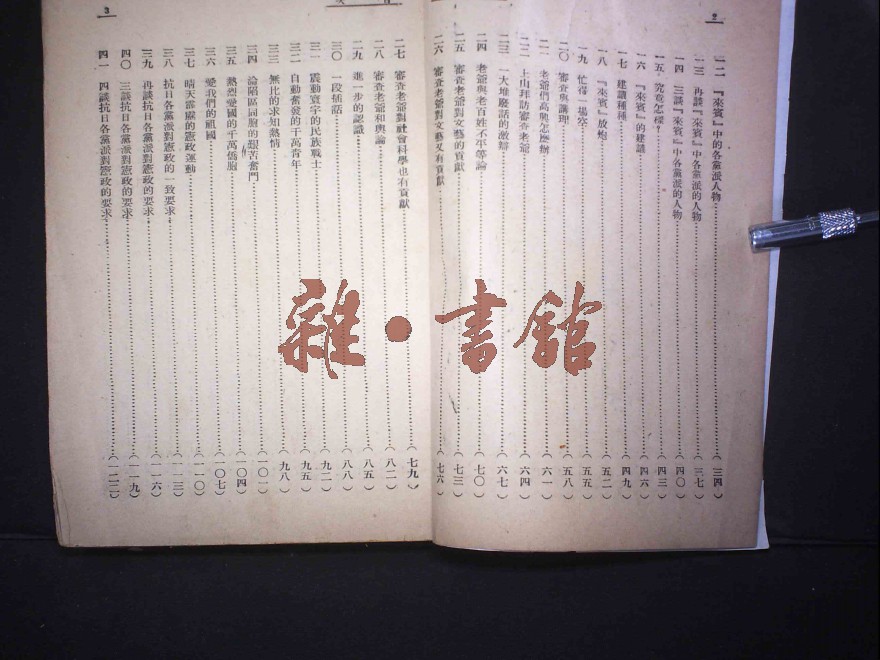 2
一二　『來賓』中的各黨派人物……（三四）
一三　再談『來賓』中各黨派的人物……（三七）
一四　三談『來賓』中各黨派的人物……（四〇）
一五　究竟怎樣？……（四三）
一六　『來賓』的建議……（四六）
一七　建議種種……（四九）
一八　『來賓』放炮……（五二）
一九　忙得一場空……（五五）
二〇　審查與講理……（五八）
二一　老爺們高興怎麼辦……（六一）
二二　上山拜訪審查老爺……（六四）
二三　一大堆廢話的激辯……（六七）
二四　老爺與老百姓不平等論……（七〇）
二五　審查老爺對文藝的貢獻……（七三）
二六　審查老爺對文藝又有貢獻……（七六）
目　次
3
二七　審查老爺對社會科學也有貢獻……（七九）
二八　審查老爺和輿論……（八二）
二九　進一步的認識……（八五）
三〇　一段插話……（八八）
三一　震動寰宇的民族戰士……（九二）
三二　自動奮發的千萬青年……（九五）
三三　無比的求知熱情……（九八）
三四　淪陷區同胞的艱苦奮鬥……（一〇一）
三五　熱烈愛國的千萬僑胞……（一〇四）
三六　愛我們的祖國……（一〇七）
三七　晴天霹靂的憲政運動……（一一〇）
三八　抗日各黨派對憲政的一致要求……（一一三）
三九　再談抗日各黨派對憲政的要求……（一一六）
四〇　三談抗日各黨派對憲政的要求……（一一九）
四一　四談抗日各黨派對憲政的要求……（一二二）
雜·書館